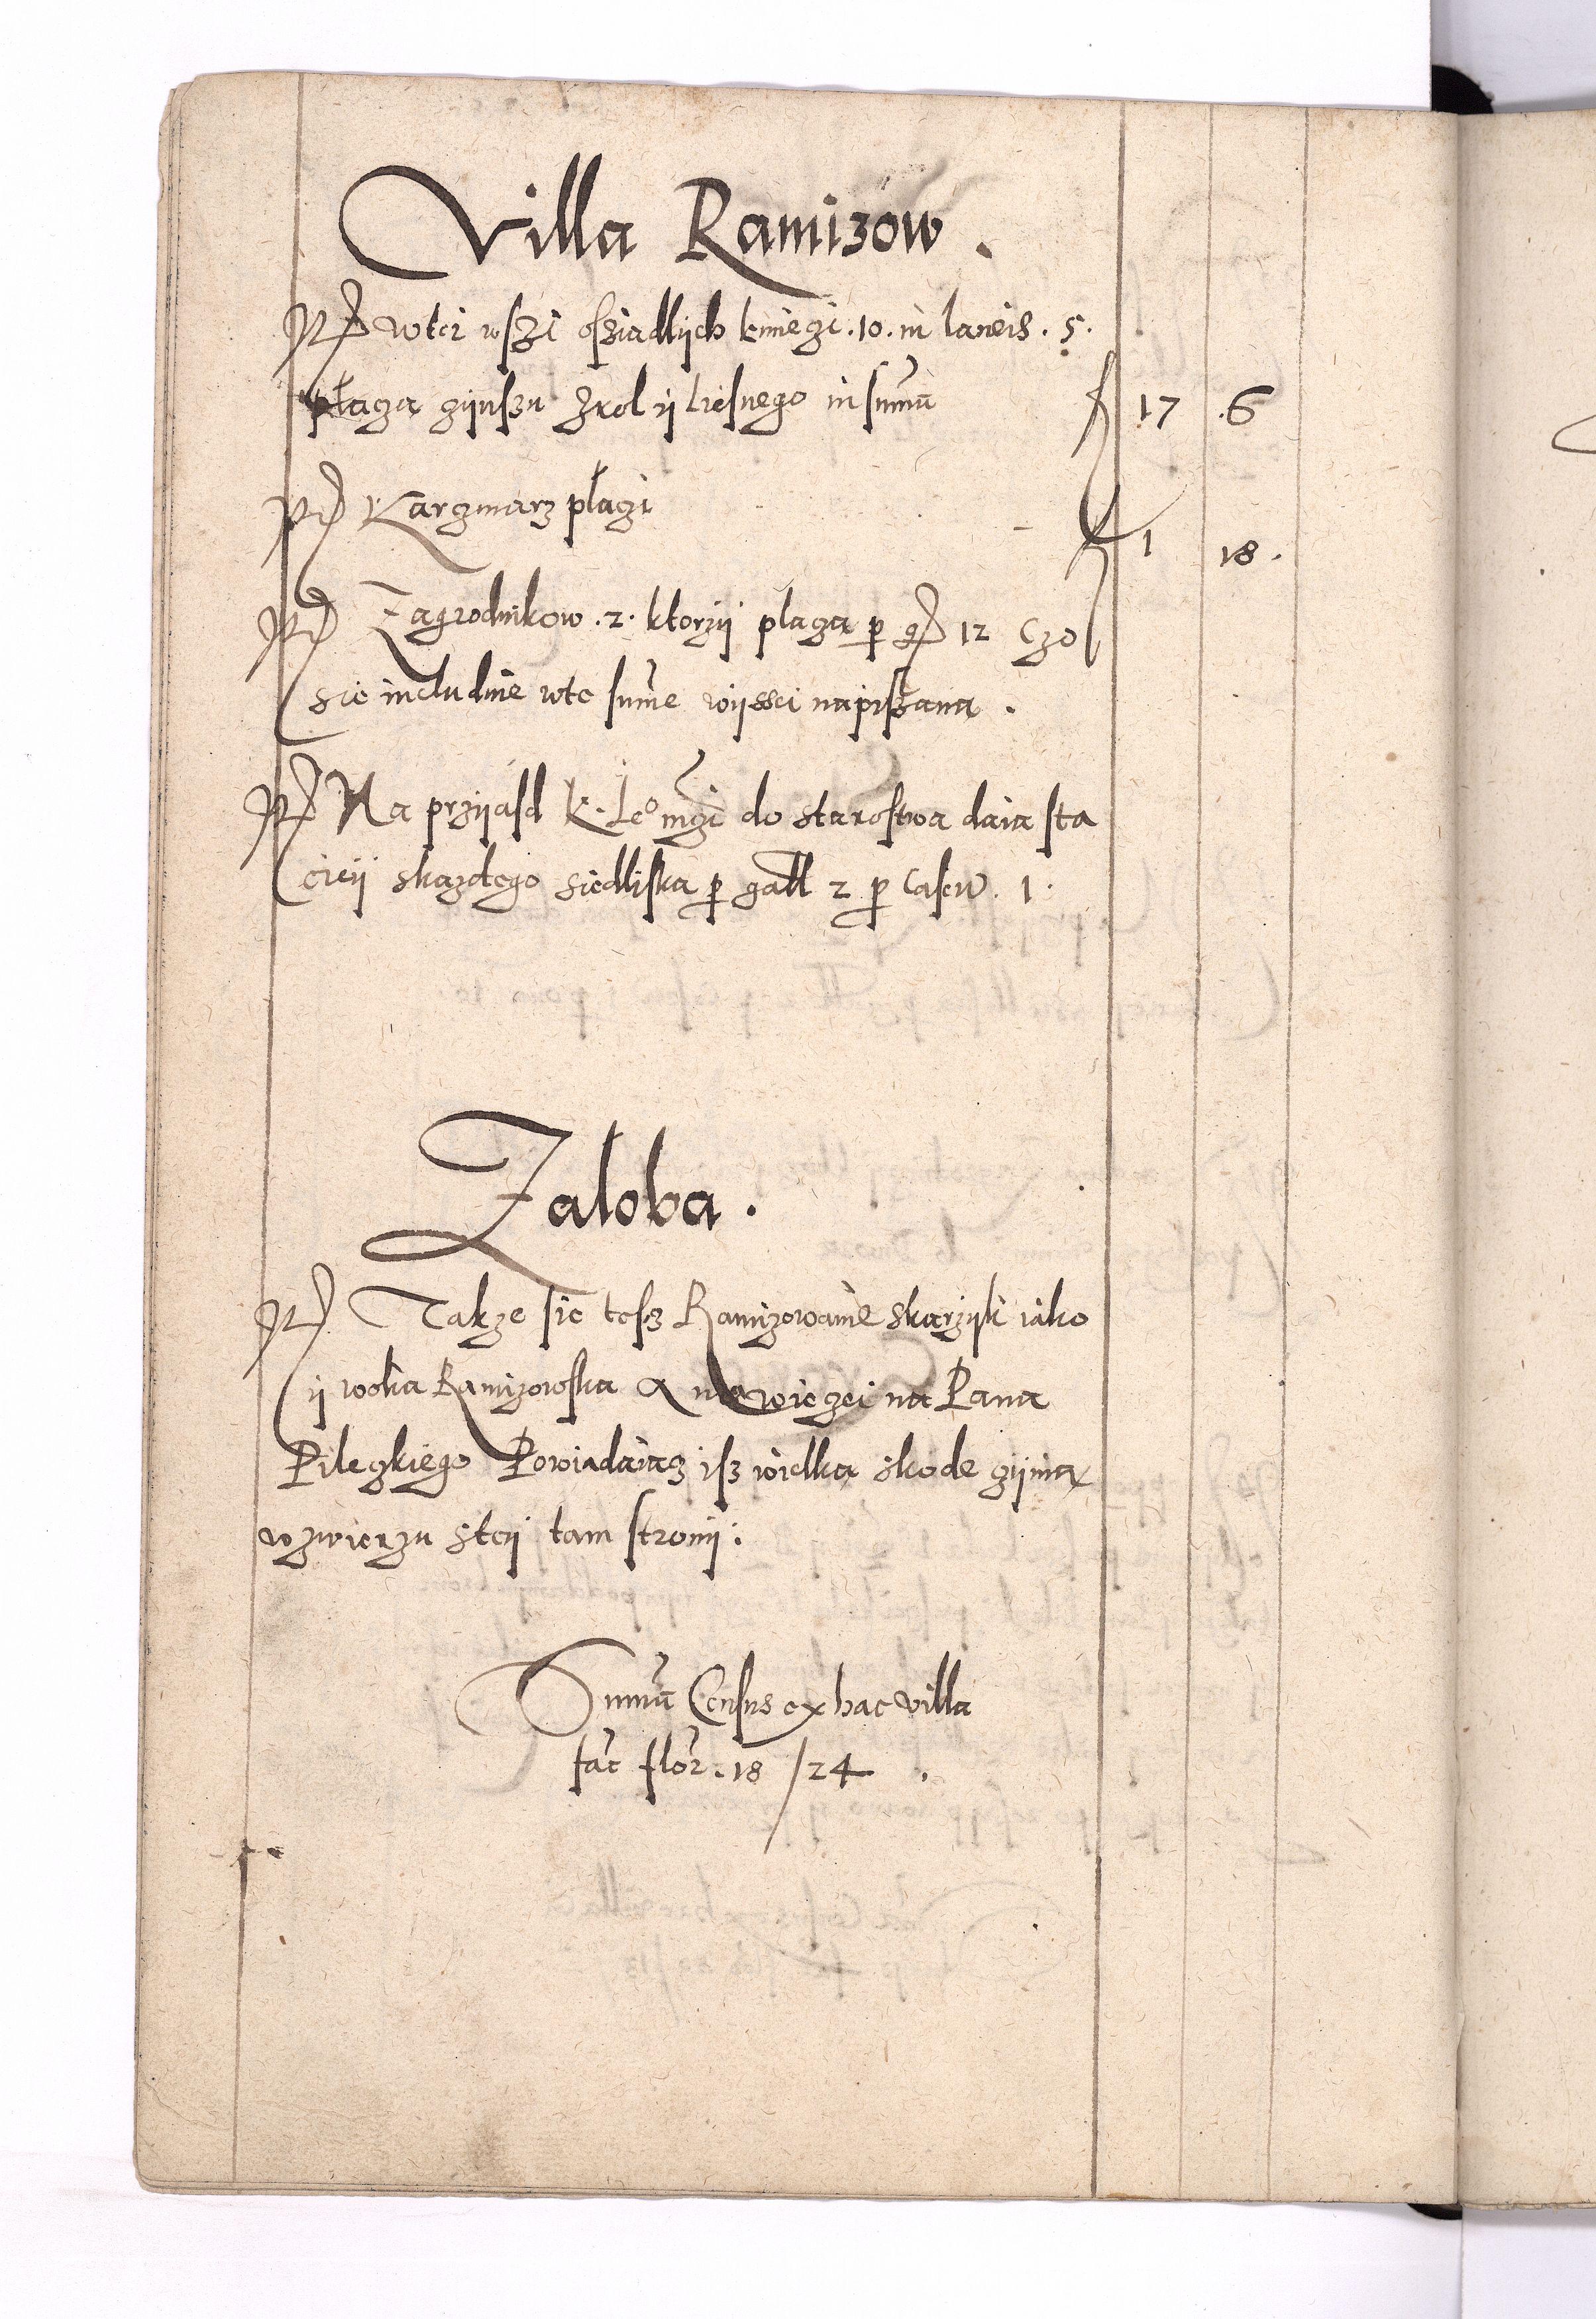 Villa Ramizow .
Itm wtei wszi osziadlijch kmiegi . 10 . in laneis . 5 .
płaga gijnszu Zrol ij liesnego in sum̄a f 17 .6
Itm Kargmarz płagi f 1 18 .
Itm Zagrodnikow . 2 . ktorzij płaga p gr 12 Czo
sie includuie wte sum̄e wijssei napiszana .
Itm Na przijasd K. Le o mczi do starostwa daia sta
cieij skazdego siedliska p gall 2 p Caseu . 1 .
Zaloba .
Itm Takze sie tesz Ramizowanie skarzijli iako
ij wolia Ramizowska nawiegei na Pana
Pilegkiego Powiadaiag isz wielka skode gijnia
wzwierzu steij tam stronij :
Sum̄a Census ex hac villa
fac flor . 18 / 24 .